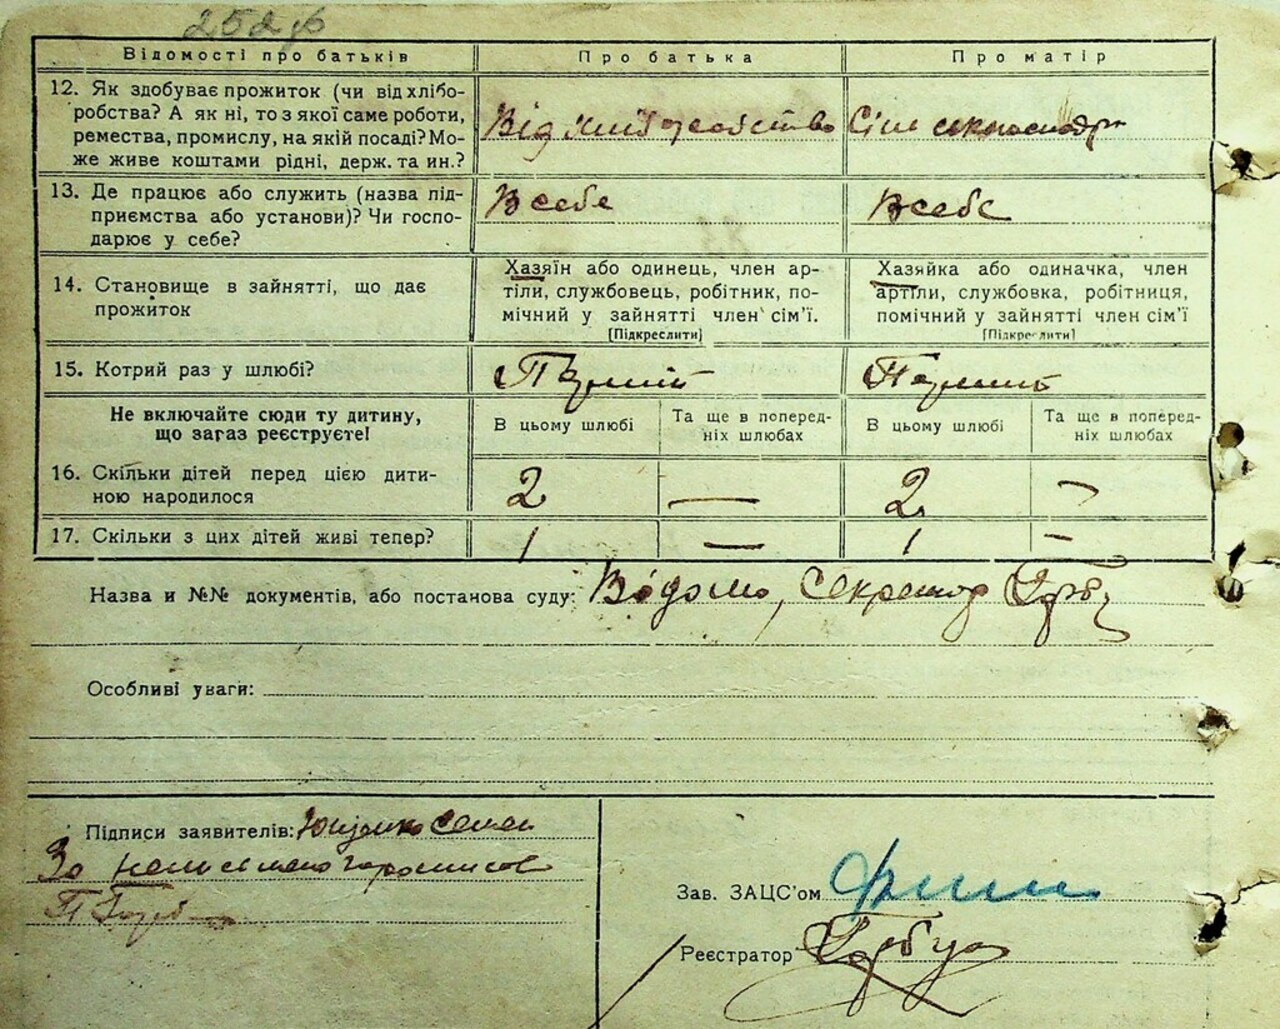 252
Відомості про батьків
Про батька
Про матір
12. Як здобуває прожиток (чи від хлібо-
робства? А як ні, то з якої саме роботи,
ремества, промислу, на якій посаді? Мо-
же живе коштами рідні, держ. та ин.?
Від хліборобство
Сіл
13. Де працює або служить (назва під-
приємства або установи)? Чи госпо-
дарює у себе?
В себе
В себе
14. Становище в зайнятті, що дає
прожиток
Хазяїн або одинець, член ар-
тіли, службовець, робітник, по-
мічний у зайнятті член сім'ї.
[Підкреслити]
Хазяйка або одиначка, член
артіли, службовка, робітниця,
помічний у зайнятті член сім'ї
[Підкреслити]
15. Котрий раз у шлюбі?
Не включайте сюди ту дитину,
що загаз реєструєте!
В цьому шлюбі
Та ще в поперед-
ніх шлюбах
В цьому шлюбі
Та ще в поперед-
ніх шлюбах
16. Скільки дітей перед цією дити-
ною народилося
2
—
2
—
17. Скільки з цих дітей живі тепер?
1
—
1
—
Назва и №№ документів, або постанова суду: Відомо, Секретар
Особливі уваги:
Підписи заявителів: Семен
За
Зав. ЗАЦС'ом
Реєстратор Горбуа